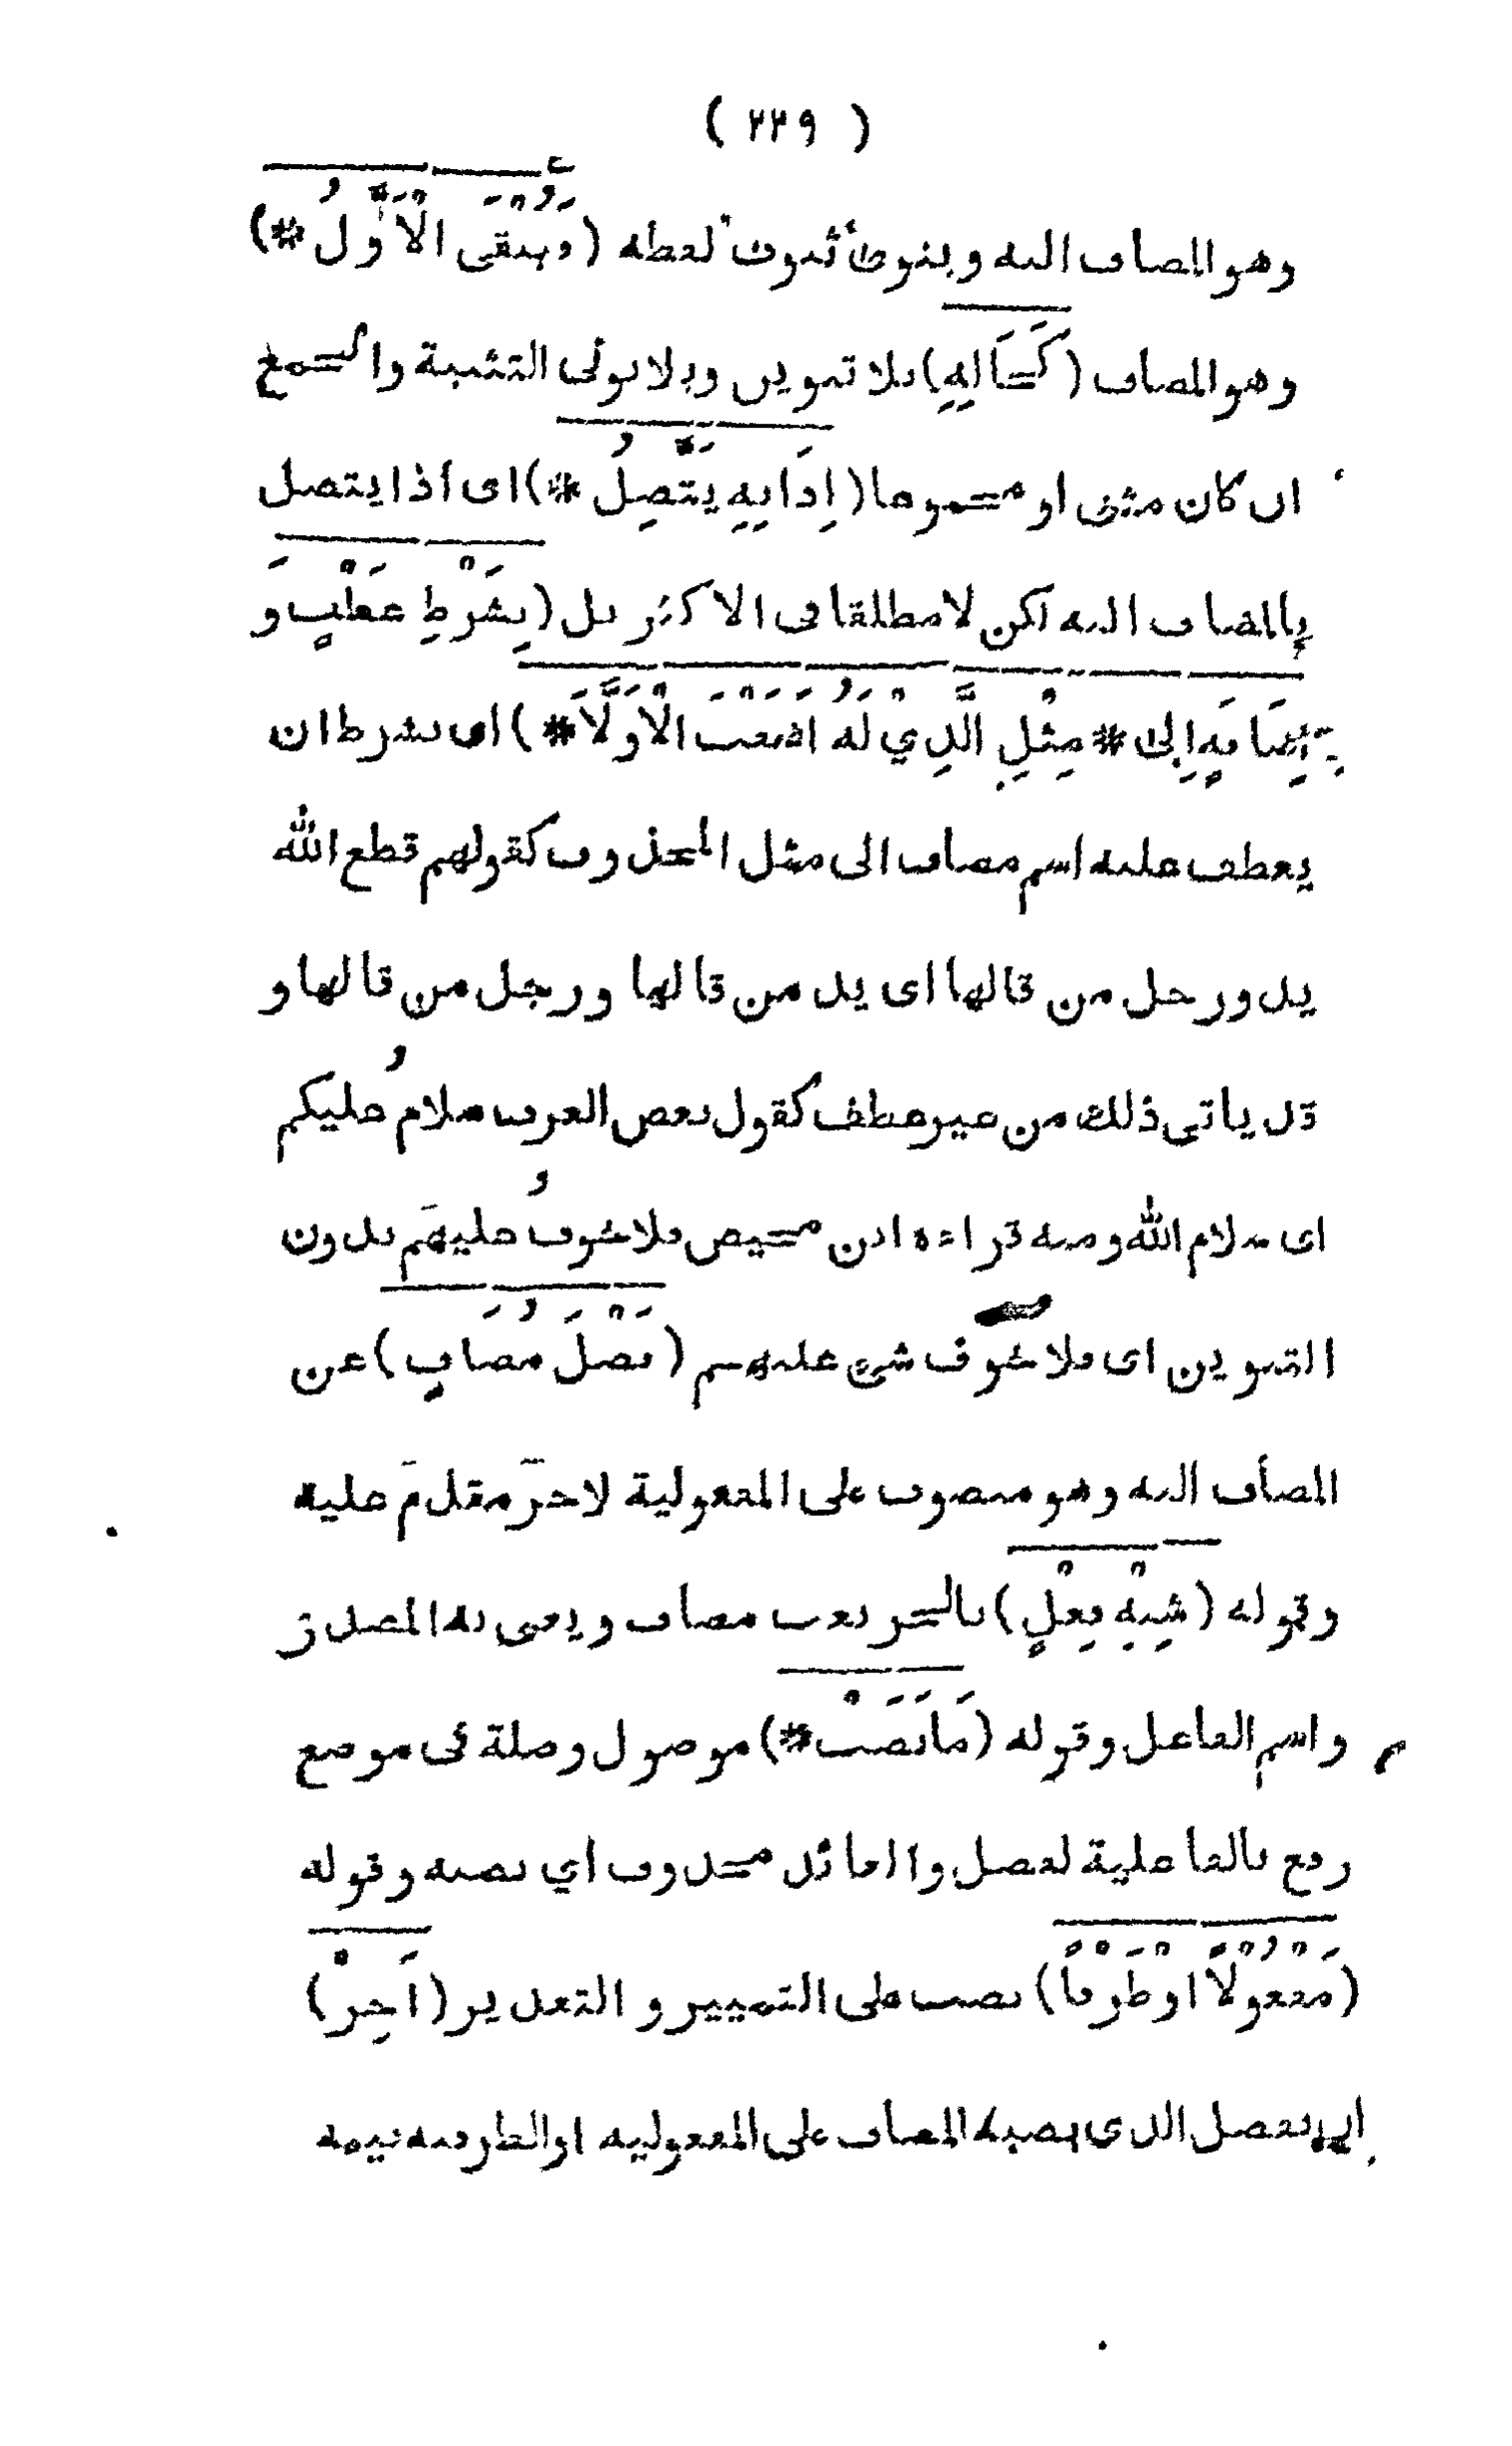 ( ٢٢٩ )
وهو المضاف اليه وينوى ثبوت لفظه (وَيَبْقَى الْاَوَّلُ #)
وهو المضاف (كَحَالِهِ) بلا تنوين وبلا نونى التثنية والجمع
ان كان مثنى او مجموعا (اِذَا بِهِ يَتَّصِلُ #) اى اذا يتصل
بالمضاف اليه لكن لا مطلقا فى الاكثر بل (بِشَرْطِ عَطْفٍ وَ
اِضَافَةٍ اِلَى # مِثْلِ الَّذِي لَهُ اَضَفْتَ الْاَوَّلَا #) اى بشرط ان
يعطف عليه اسم مضاف الى مثل المحذوف كقولهم قطع الله
يد ورجل من قالها اى يد من قالها ورجل من قالها و
قد ياتى ذلك من غير عطف كقول بعض العرب سلامُ عليكم
اى سلام الله ومنه قراءة ابن محيص فلا خوفُ عليهم بدون
التنوين اى فلا خوف شىء عليهم (فَصْلَ مُضَافٍ) عن
المضاف اليه وهو منصوب على المفعولية لاجزْ مقدم عليه
وقوله (شِبْهِ فِعْلٍ) بالجر نعت مضاف ويعنى به المصدر
واسم الفاعل وقوله (مَا نَصَبْ #) موصول وصلة فى موضع
رفع بالفاعلية لفصل والعائد محذوف اي نصبه وقوله
(مَفْعُولًا اَوْ ظَرْفًا) نصب على التمييز والتقدير (اَجِزْ)
ان يفصل الذى نصبه المضاف على المفعولية او الظرفية بينه